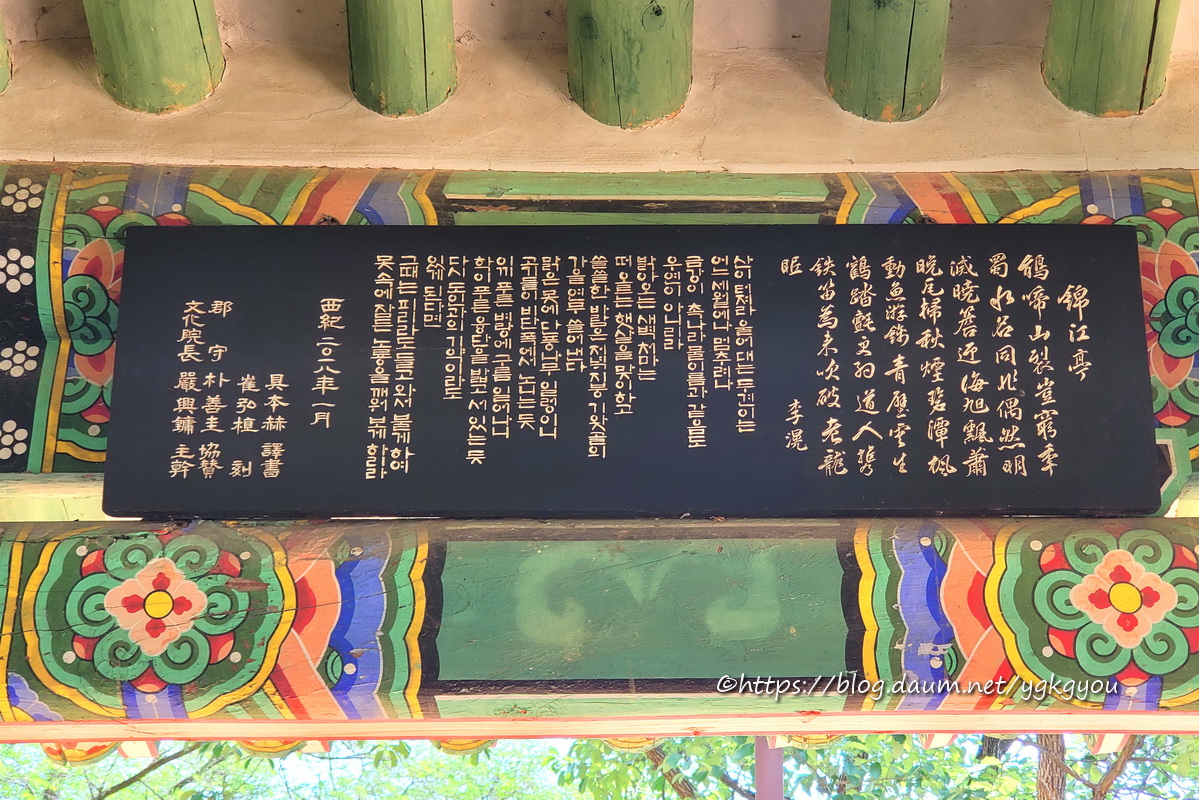 錦江亭
鵑啼山裂豈窮年
蜀水名同非偶然明
滅曉簷迎海旭飄蕭
晩瓦掃秋煙碧潭楓
動魚游錦青壁雲生
鶴踏氈更約道人攜
鐵笛為来吹破老龍
眠 李滉
산이 터져라 울어대는 두견이는
어느 세월에나 멈추려나
금강이 촉나라 물 이름과 같음도
우연이 아니라
밝아오는 새벽 처마는
떠오르는 햇살을 맞이하고
쓸쓸한 밤은 저녁 지붕 기왓골의
가을 연무 쓸어낸다
맑은 못에 단풍나무 일렁이니
고기들이 비단폭에서 노니는 듯
위 푸른 벼랑에 구름 일어나니
학이 푸른 융단을 밟고 서 있는 듯
다시 도인과의 기약이라도
있게 된다면
그때는 피리라도 들고 와서 불게 하여
못 속에 잠든 노룡을 깨워 보게 하리라
西紀 二〇一八年 一月
具本赫 譯書
崔弘植 刻
郡守 朴善圭 協贊
文化院長 嚴興鏞 主幹
©https://blog.daum.net/ygkgyou